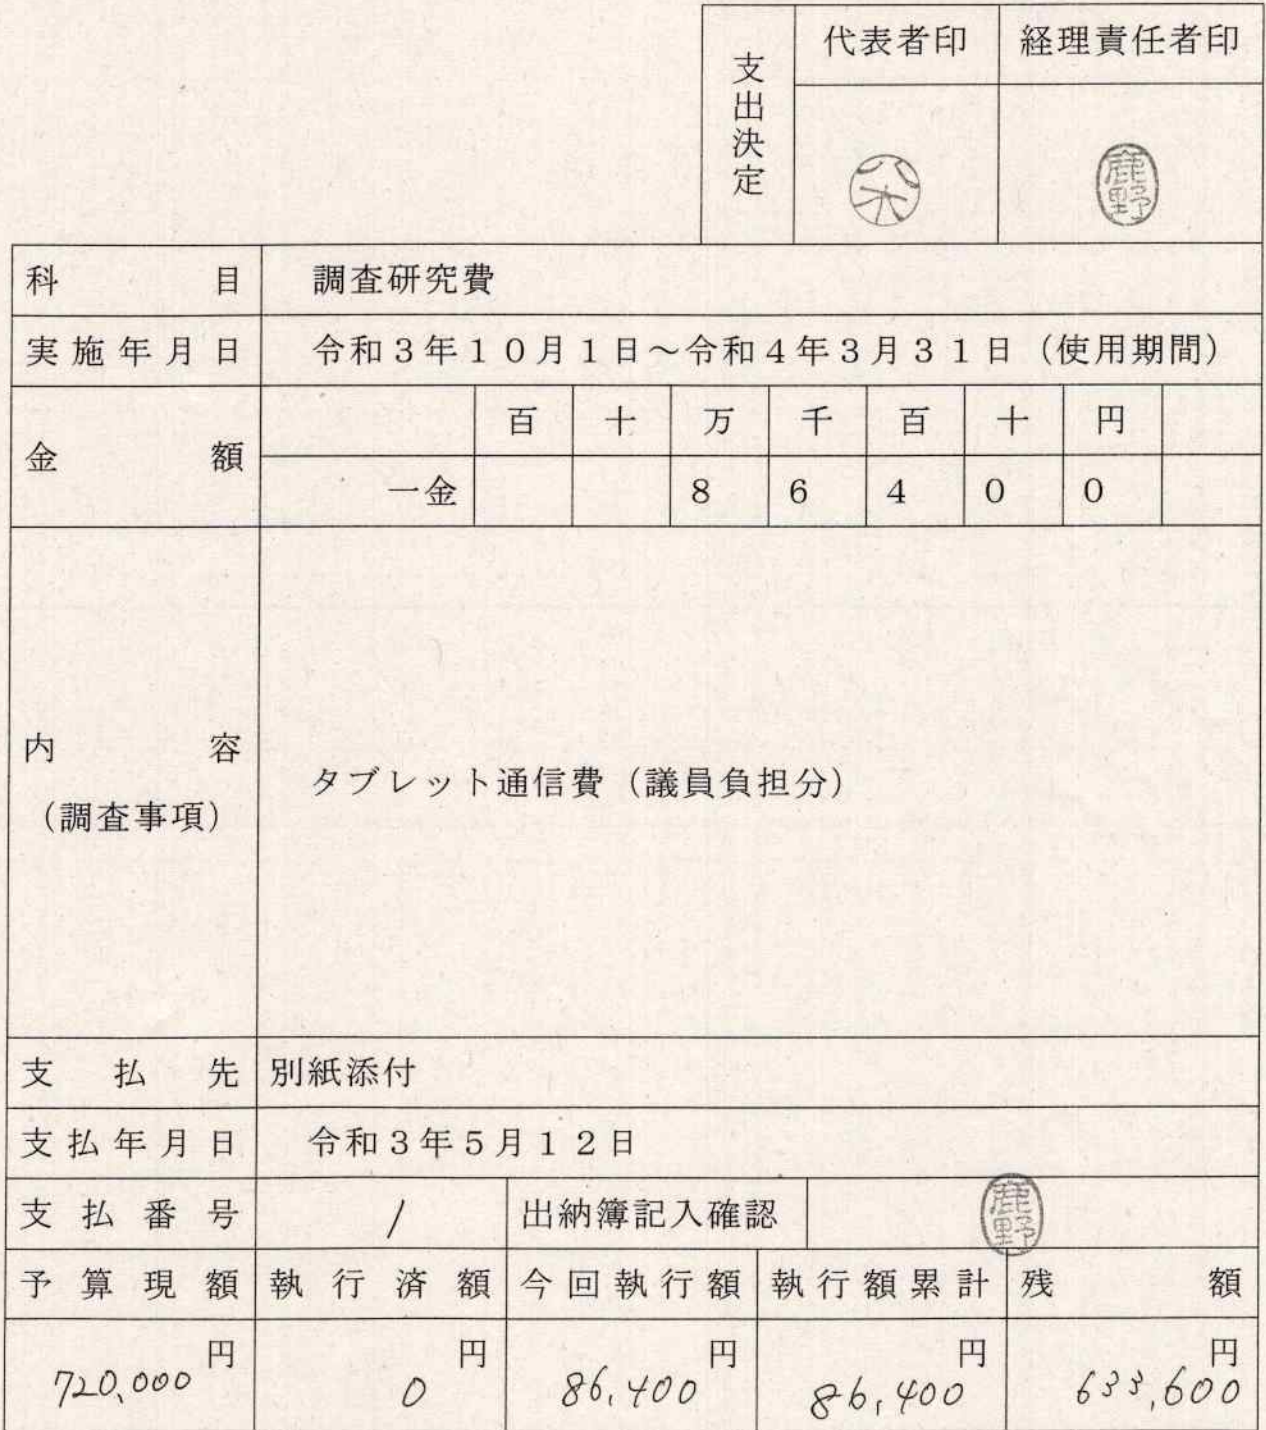 支出決定
代表者印 経理責任者印
八木 鹿野
科目 調査研究費
実施年月日 令和3年10月1日～令和4年3月31日（使用期間）
金額 百 十 万 千 百 十 円
一金 8 6 4 0 0
内容
（調査事項）
タブレット通信費（議員負担分）
支払先 別紙添付
支払年月日 令和3年5月12日
支払番号 / 出納簿記入確認 鹿野
予算現額 執行済額 今回執行額 執行額累計 残額
円 円 円 円 円
720,000 0 86,400 86,400 633,600